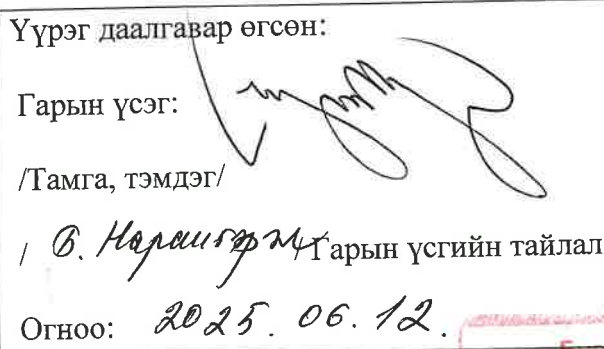 Үүрэг даалгавар өгсөн:
Гарын үсэг:
/Тамга, тэмдэг/
/ Б. Нарангэрэл / Гарын үсгийн тайлал
Огноо: 2025. 06. 12.